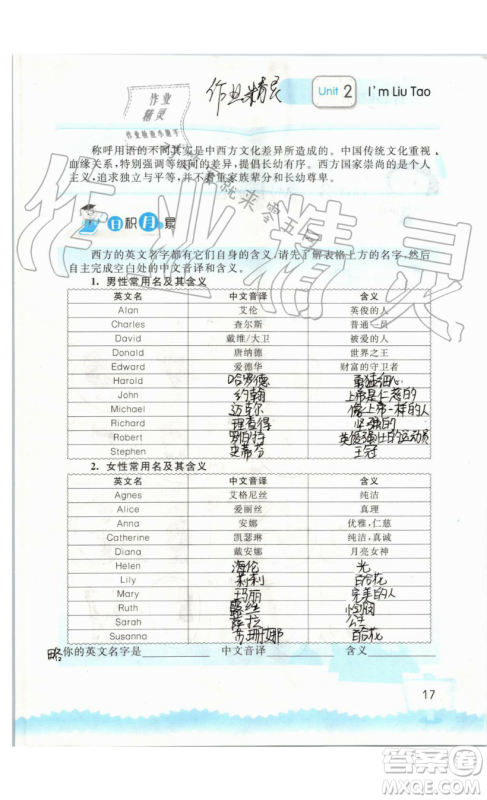 作业精灵
Unit 2 I'm Liu Tao
作业
精灵
作业检查小助手
称呼用语的不同其实是中西方文化差异所造成的。中国传统文化重视
血缘关系,特别强调等级差异,提倡长幼有序。西方国家崇尚的是个人
主义,追求独立与平等,并不看重家族辈分和长幼尊卑。
日积月累
西方的英文名字都有它们自身的含义,请先了解表格上方的名字,然后
自主完成空白处的中文音译和含义。
1. 男性常用名及其含义
英文名 中文音译 含义
Alan 艾伦 英俊的人
Charles 查尔斯 普通一员
David 戴维/大卫 被爱的人
Donald 唐纳德 世界之王
Edward 爱德华 财富的守卫者
Harold 哈罗德
John 约翰 上帝是仁慈的
Michael 迈克尔 像上帝一样的人
Richard 理查得 坚强的
Robert 罗伯特
Stephen 史蒂芬 王冠
2. 女性常用名及其含义
英文名 中文音译 含义
Agnes 艾格尼丝 纯洁
Alice 爱丽丝 真理
Anna 安娜 优雅,仁慈
Catherine 凯瑟琳 纯洁,真诚
Diana 戴安娜 月亮女神
Helen 海伦 光
Lily 莉利 百合花
Mary 玛丽 完美的人
Ruth 露丝
Sarah 萨拉 公主
Susanna 苏珊娜 百合花
略 你的英文名字是 中文音译 含义
17
作业精灵
答案圈
MXQE.COM